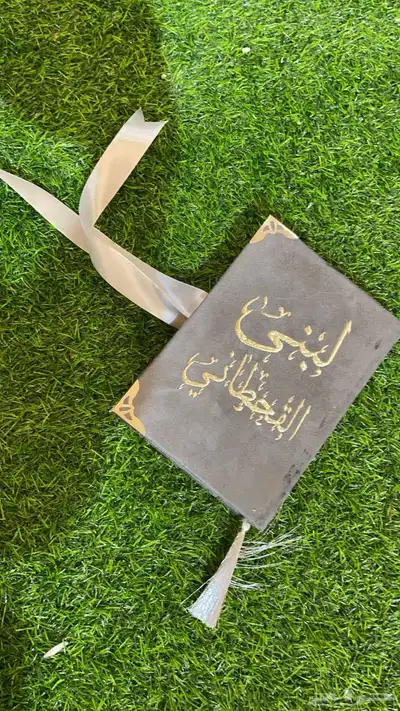 لبنى
القحطاني